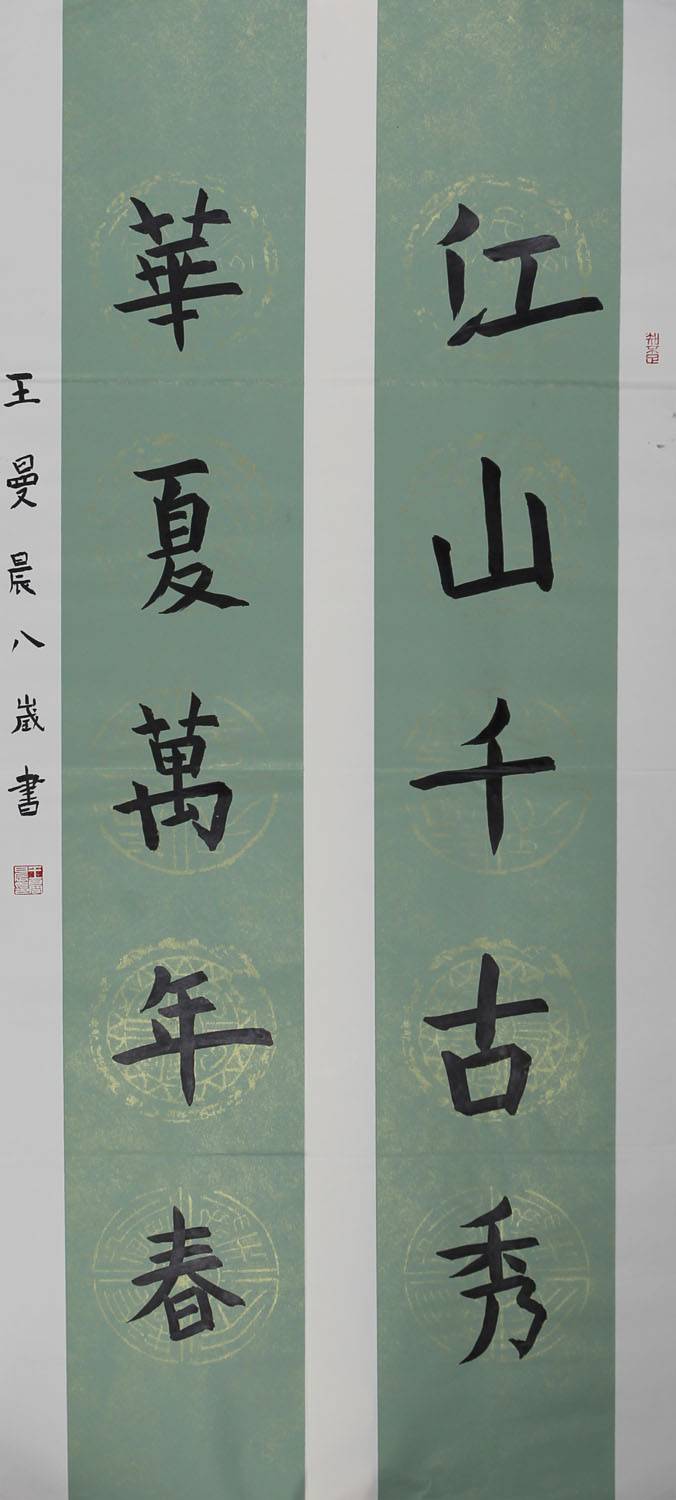 江山千古秀
華夏萬年春
王曼晨八歲書